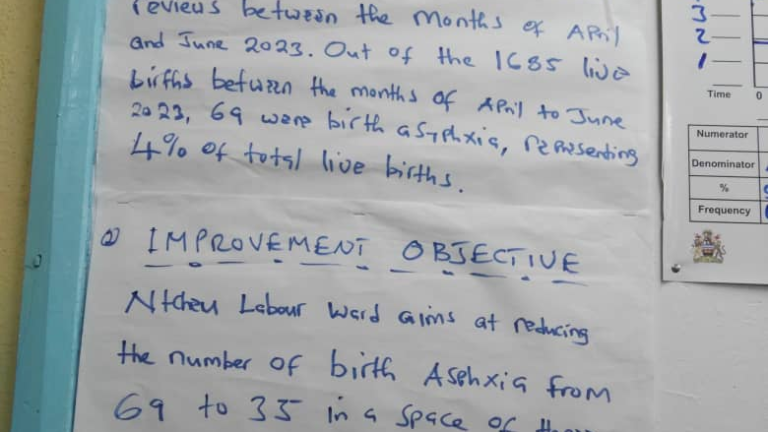 reviews between the months of April
and June 2023. Out of the 1685 live
births between the months of April to June
2023, 69 were birth asyphxia, representing
4% of total live births.
② IMPROVEMENT OBJECTIVE
Ntcheu Labour Ward aims at reducing
the number of birth Asphxia from
69 to 35 in a space of
3
2
1
Time 0
Numerator
Denominator
%
Frequency